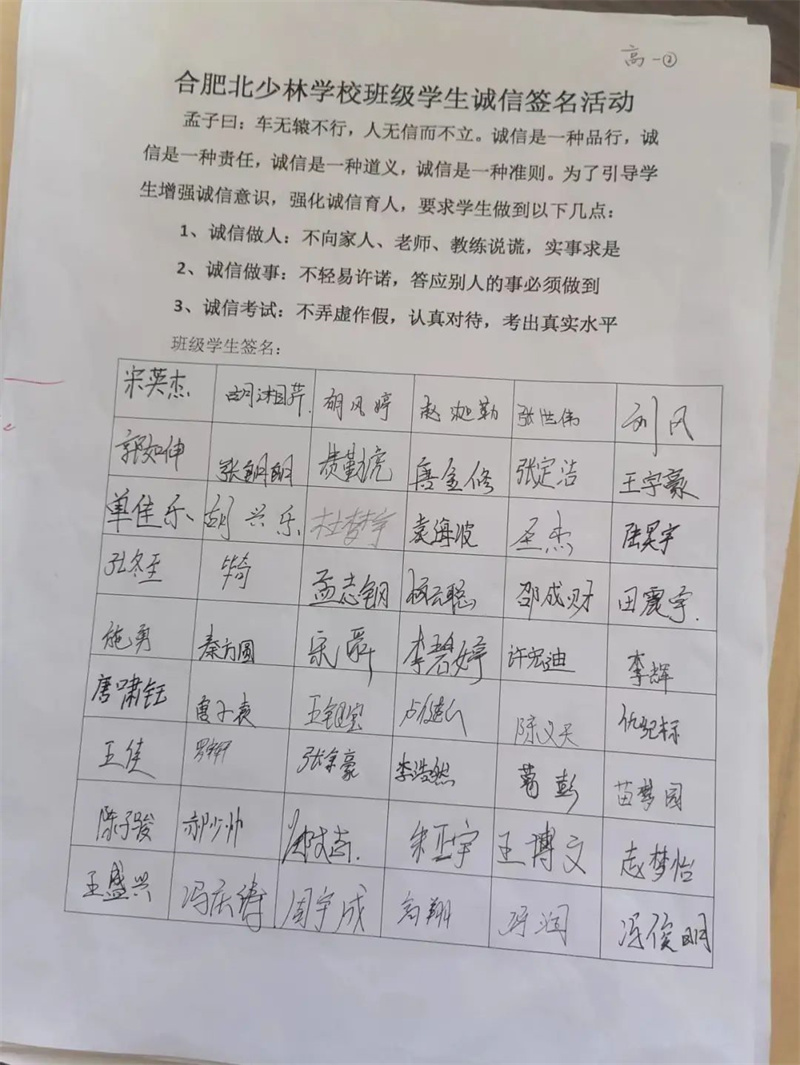 高一②
合肥北少林学校班级学生诚信签名活动
孟子曰：车无辕不行，人无信而不立。诚信是一种品行，诚
信是一种责任，诚信是一种道义，诚信是一种准则。为了引导学
生增强诚信意识，强化诚信育人，要求学生做到以下几点：
1、诚信做人：不向家人、老师、教练说谎，实事求是
2、诚信做事：不轻易许诺，答应别人的事必须做到
3、诚信考试：不弄虚作假，认真对待，考出真实水平
班级学生签名：
宋英杰 胡湘芹 胡风婷 张世伟 刘风
郭如伸 张朗朗 唐金修 张定浩 王宇豪
单佳乐 胡兴乐 杜梦宇 袁海波 圣杰 陆昊宇
张冬至 毕奇 孟志钢 杨云聪 邵成财 田震宇
施勇 秦方圆 宋舜 李碧婷 许宏迪 李辉
唐啸钰 陈义天
王佳 张余豪 李浩然 葛彭 苗梦园
陈子骏 郝少帅 朱亚宇 王博文 赵梦怡
王盛兴 冯庆涛 周宇成 高翔 冯俊明